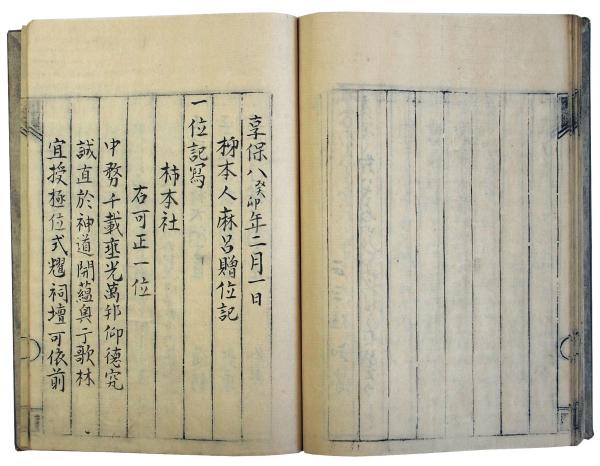 享保八癸卯年二月一日
柿本人麻呂贈位記
一位記寫
柿本社
右可正一位
中務千載垂光萬邦仰德究
誠直於神道開蘊奥于歌林
宜授極位式耀祠壇可依前